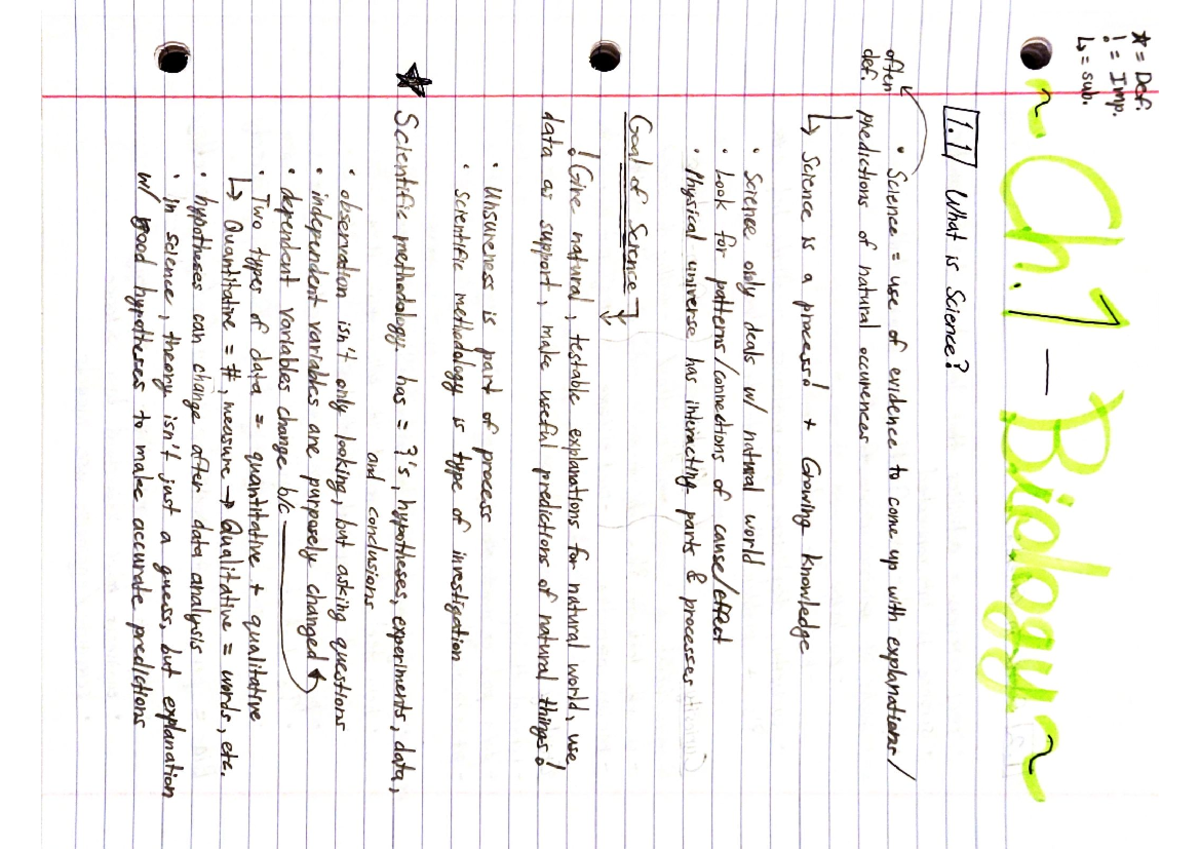 ☆ = Def.
! = Imp.
↳ = sub.
~ Ch. 1 — Biology ~
1.1 What is Science?
often def.
• Science = use of evidence to come up with explanations/
predictions of natural occurences
↳ Science is a process! + Growing knowledge
• Science only deals w/ natural world
• Look for patterns/connections of cause/effect
• Physical universe has interacting parts & processes
Goal of Science
! Give natural, testable explanations for natural world, use
data as support, make useful predictions of natural things!
• Unsureness is part of process
• Scientific methodology is type of investigation
☆ Scientific methodology has = ?'s, hypotheses, experiments, data,
and conclusions
• observation isn't only looking, but asking questions
• independent variables are purposely changed
• dependent variables change b/c
• Two types of data = quantitative + qualitative
↳ Quantitative = #, measure → Qualitative = words, etc.
• hypotheses can change after data analysis
• in science, theory isn't just a guess, but explanation
w/ good hypotheses to make accurate predictions